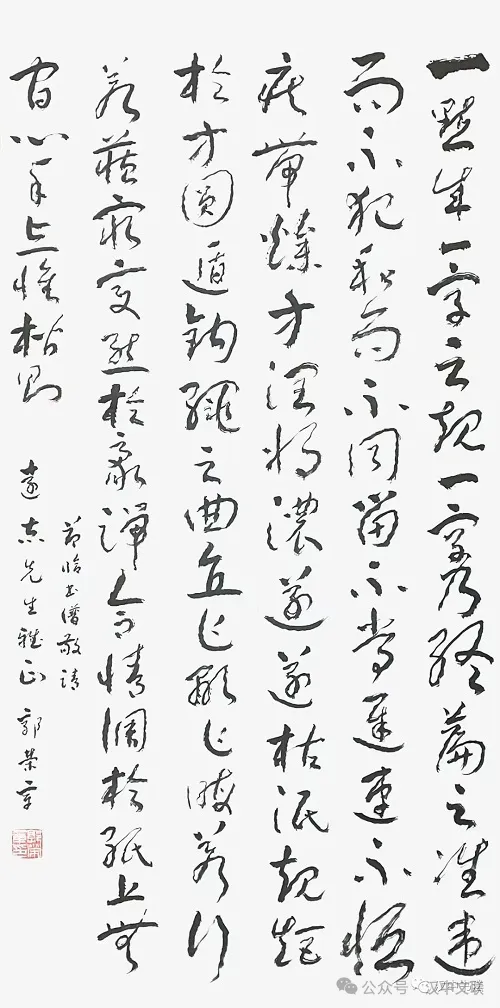 一點成一字之規一字乃終篇之准違
而不犯和而不同留不常遲遣不恒
疾帶燥方潤將濃遂遂枯泯規矩
於方圓遁鉤繩之曲直乍顯乍晦若行
若藏窮變態於豪端合情調於紙上無
間心手忘懷楷則
節臨書譜敬請
遠志先生雅正 郭榮章
公众号·汉中文联